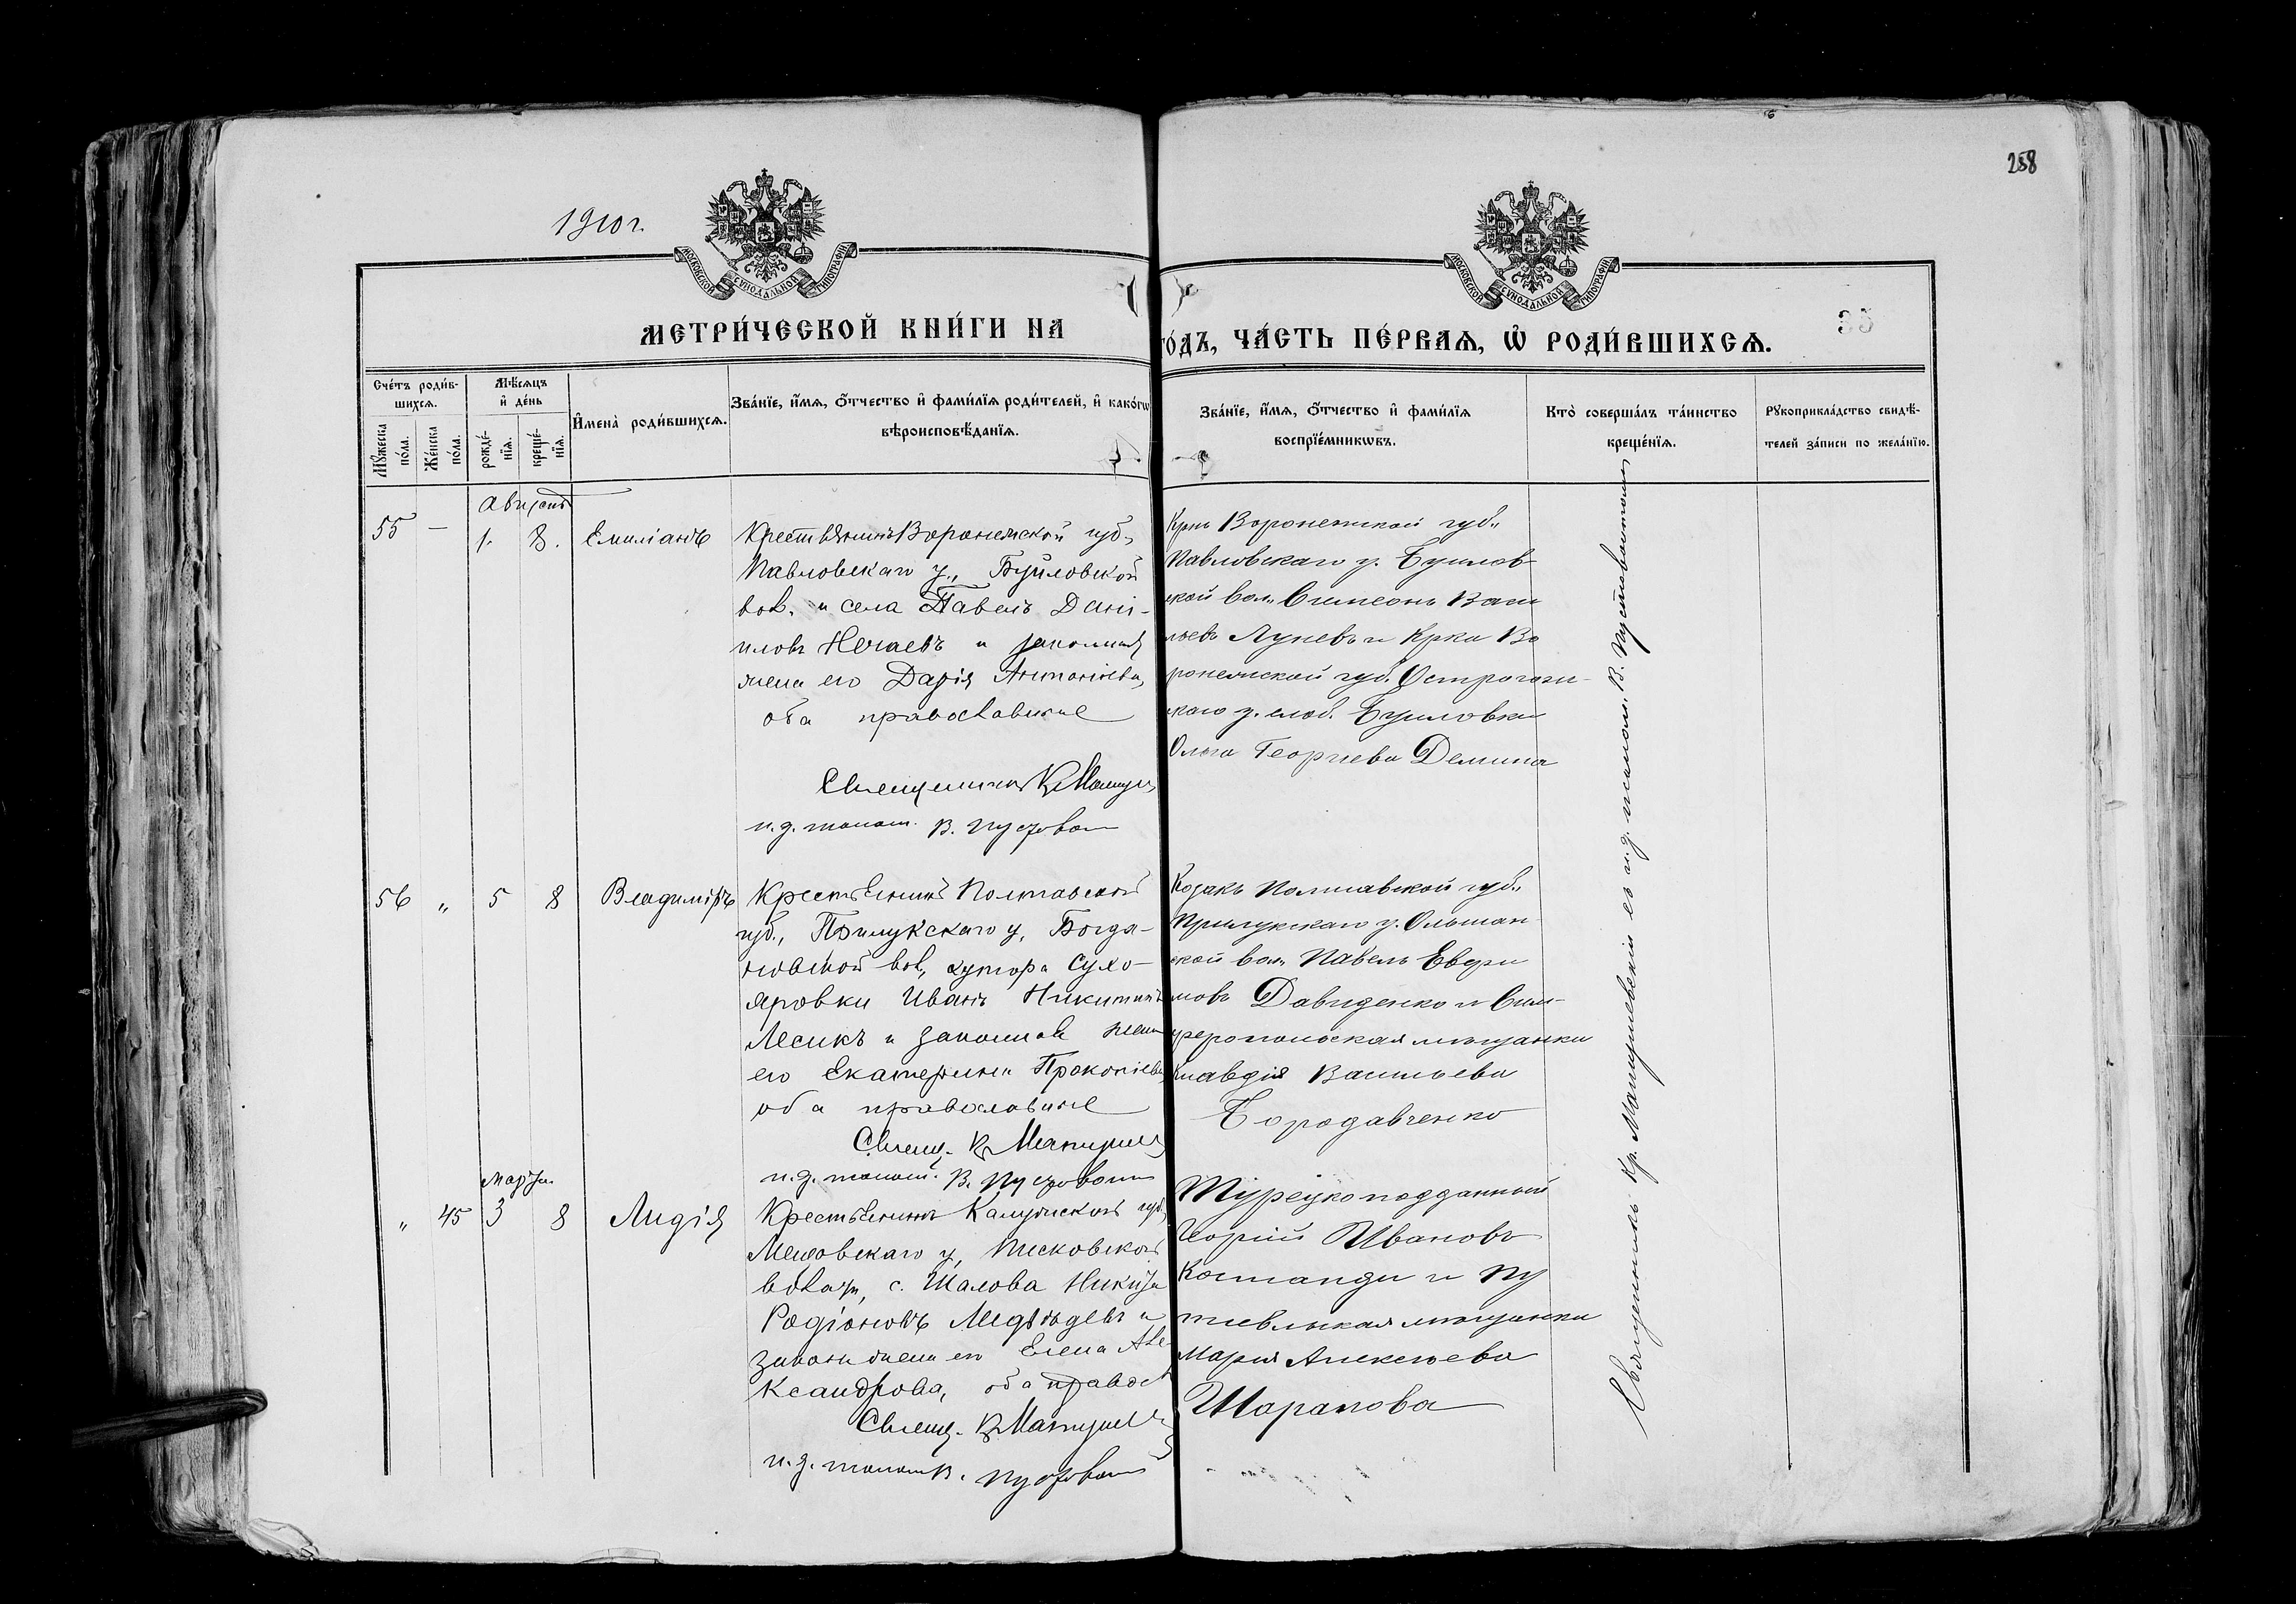 258
1910 г.
МОСКОВСКОЙ СУНОДАЛЬНОЙ ТИПОГРАФІИ
МОСКОВСКОЙ СУНОДАЛЬНОЙ ТИПОГРАФІИ
35
МЕТРИ́ЧЕСКОЙ КНИ́ГИ НА
ГО́ДЪ, ЧА́СТЬ ПЕ́РВАѦ, Ѡ҆ РОДИ́ВШИХСѦ.
Сче́тъ роди́в-
шихсѧ.
Мꙋ́жеска по́ла.
Же́нска по́ла.
Мѣ́сѧцъ
и҆ де́нь
рожде́-
нїѧ.
креще́-
нїѧ.
И҆мена̀ роди́вшихсѧ.
Зва́нїе, и҆́мѧ, ѻ҆́тчество и҆ фами́лїѧ роди́телей, и҆ како́гѡ
вѣроисповѣ́данїѧ.
Зва́нїе, и҆́мѧ, ѻ҆́тчество и҆ фами́лїѧ
воспрїе́мникѡвъ.
Кто̀ соверша́лъ та́инство
креще́нїѧ.
Рꙋкоприкла́дство свидѣ́-
телей за́писи по жела́нїю.
Августъ
55 — 1. 8. Емиліанъ
Крестьянинъ Воронежской губ.,
Павловскаго у., Буйловской
вол. и села Павелъ Дані-
иловъ Нечаевъ и законная
жена его Дарія Антоніева,
оба православные
Священникъ К. Мацуе
и. д. псалом. В. Пустовой
Крнъ Воронежской губ.,
Павловскаго у. Буилов-
ской вол., Симеонъ Васи
льевъ Луневъ и Крка Во
ронежской губ. Острогож-
скаго у. слоб. Буиловки
Ольга Георгиева Демина
56 „ 5 8 Владиміръ
Крестьянинъ Полтавской
губ., Прилукскаго у, Богда-
новской вол, хутора Сухо-
яровки Иванъ Никитинъ
Лесикъ и законная жена
его Екатерина Прокопіева,
оба православные
Свящ. К.
и. д. псалом. В. Пустовой
Козакъ Полтавской губ.,
Прилукскаго у. Ольшан-
ской вол. Павелъ Евфи
мовъ Давиденко и Сим-
феропольская мѣщанка
Клавдія Васильева
Бородавченко
Марта
„ 45 3 8 Лидія
Крестьянинъ Калужской губ,
Мещовскаго у,
волости, с. Шалова Никита
Родіоновъ Медвѣдевъ и
закон. жена его Елена Але-
ксандрова, оба правосл
Свящ. К.
и. д. псалом. В. Пустовой
Турецкоподданный
Георгій Ивановъ
Команди и Пу
тивльская мѣщанка
Марія Алексѣева
Шарапова
Священникъ Кр. съ и. д. псалом. В. Пустовойтомъ